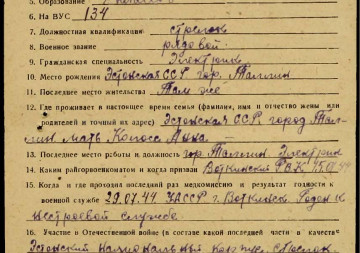 5. Образование
6. На ВУС 134
7. Должностная квалификация стрелок
8. Военное звание рядовой
9. Гражданская специальность Электрик
10. Место рождения Эстонская ССР гор. Таллин
11. Последнее место жительства Там же
12. Где проживает в настоящее время семья (фамилия, имя и отчество жены или
родителей и точный их адрес) Эстонская ССР город Тал-
лин мать Анна
13. Последнее место работы и должность гор. Таллин Электрик
14. Каким райгорвоенкоматом и когда призван Воткинский РВК
15. Когда и где проходил последний раз медкомиссию и результат годности к
военной службе 29.07.44 УАССР г. Воткинск. Годен к
нестроевой службе.
16. Участие в Отечественной войне (в составе какой последней части в качеств
Эстонский национальный корпус стрелок